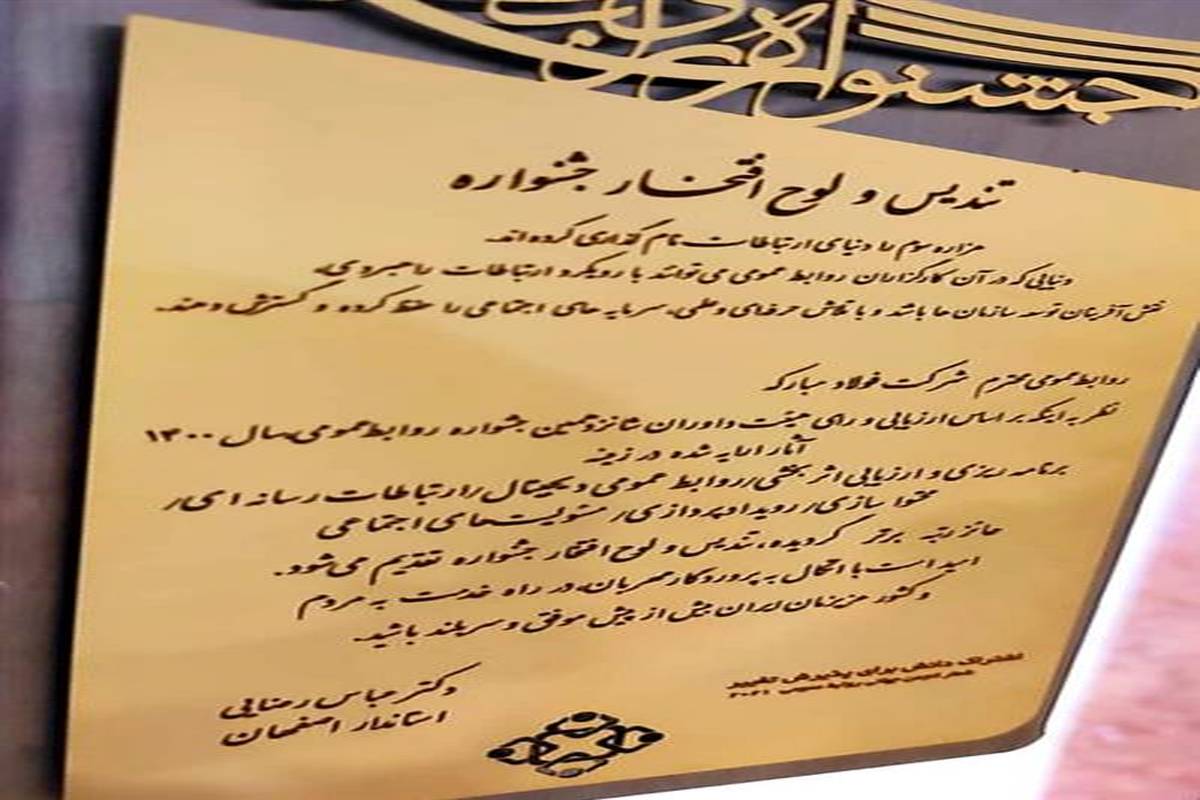 جشنواره
تندیس و لوح افتخار جشنواره
هزاره سوم را دنیای ارتباطات نام گذاری کرده اند.
دنیایی که در آن کارگزاران روابط عمومی می توانند با رویکرد ارتباطات راهبردی،
نقش آفرینان توسعه سازمان ها باشند و با تلاش حرفه ای و علمی، سرمایه های اجتماعی را حفظ کرده و گسترش دهند.
روابط عمومی محترم شرکت فولاد مبارکه
نظر به اینکه بر اساس ارزیابی و رای هیئت داوران شانزدهمین جشنواره روابط عمومی سال ۱۴۰۰
آثار ارایه شده در زمینه
برنامه ریزی و ارزیابی اثر بخشی/روابط عمومی دیجیتال/ارتباطات رسانه ای/
محتوا سازی/رویداد پردازی/مسئولیت های اجتماعی
حائز رتبه برتر گردیده، تندیس و لوح افتخار جشنواره تقدیم می شود.
امید است با اتکال به پروردگار مهربان، در راه خدمت به مردم
و کشور عزیزمان ایران بیش از پیش موفق و سربلند باشید.
اشتراک دانش برای پذیرش تغییر
شعار انجمن جهانی روابط عمومی ۲۰۲۱
دکتر عباس رضایی
استاندار اصفهان